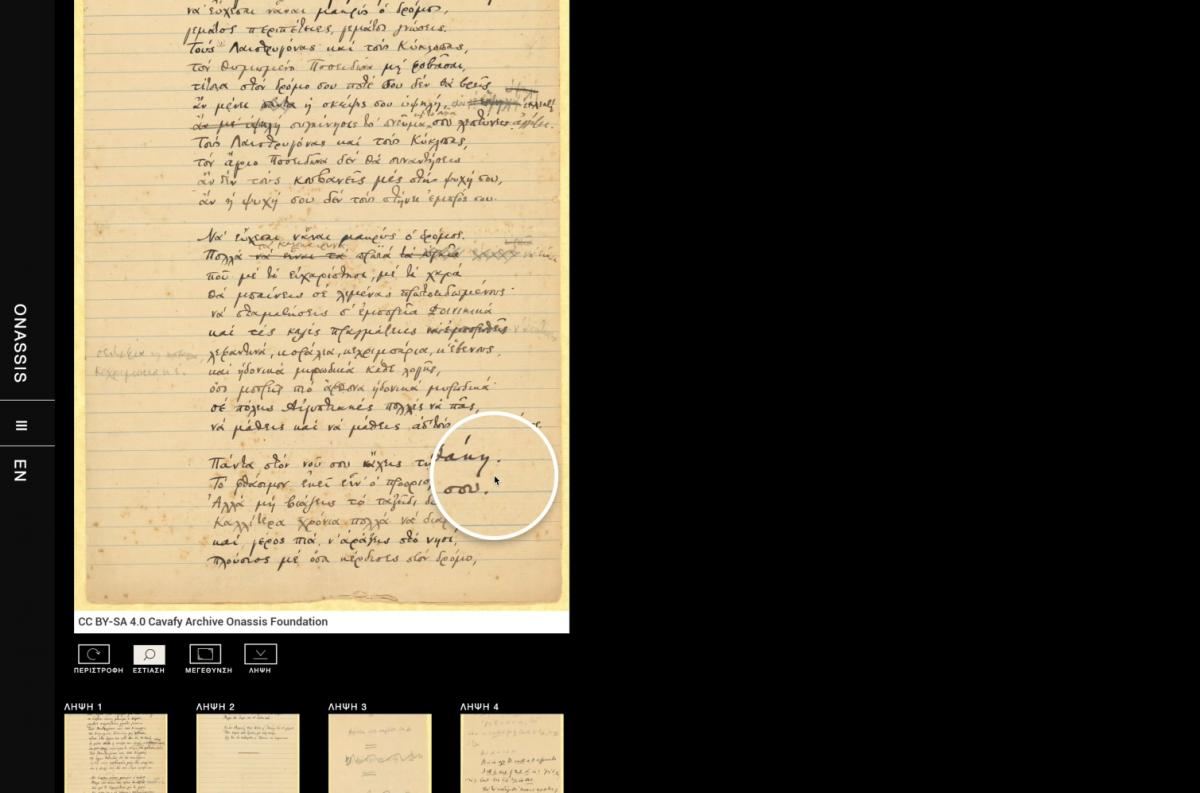 νὰ εὔχεσαι νἆναι μακρύς ὁ δρόμος,
γεμάτος περιπέτειες, γεμάτος γνώσεις.
Τούς Λαιστρυγόνας καί τούς Κύκλωπας,
τόν θυμωμένο Ποσειδῶνα μή φοβᾶσαι,
τέτοια στόν δρόμο σου ποτέ σου δέν θά βρεῖς
ἄν μένει ἡ σκέψις σου ὑψηλή, ἄν ἐκλεκτή
συγκίνησις τό πνεῦμα σου
Τούς Λαιστρυγόνας καί τούς Κύκλωπας,
τόν ἄγριο Ποσειδῶνα δέν θά συναντήσεις
ἄν δέν τούς κουβανεῖς μές στήν ψυχή σου,
ἄν ἡ ψυχή σου δέν τούς στήνει ἐμπρός σου.
Νά εὔχεσαι νἆναι μακρύς ὁ δρόμος.
Πολλά τά καλοκαιρινά πρωϊά νά εἶναι
πού μέ τί εὐχαρίστησι, μέ τί χαρά
θά μπαίνεις σέ λιμένας πρωτοειδωμένους·
νά σταματήσεις σ' ἐμπορεῖα Φοινικικά
καί τές καλές πραγμάτειες
σεντέφια καί κοράλλια, κεχριμπάρια, κ' ἔβενους,
καί ἡδονικά μυρωδικά κάθε λογῆς,
ὅσο μπορεῖς πιό ἄφθονα ἡδονικά μυρωδικά·
σέ πόλεις Αἰγυπτιακές πολλές νά πᾶς,
νά μάθεις καί νά μάθεις ἀπ' τούς
Πάντα στόν νοῦ σου νἄχεις τήν Ἰθάκη.
Τό φθάσιμον ἐκεῖ εἶν' ὁ προορισ σου.
Ἀλλά μή βιάζεις τό ταξεῖδι
Καλλίτερα χρόνια πολλά νά διαρ
καί γέρος πιά ν' ἀράξεις στό νησί,
πλούσιος μέ ὅσα κέρδισες στόν δρόμο,
CC BY-SA 4.0 Cavafy Archive Onassis Foundation
ONASSIS
EN
ΠΕΡΙΣΤΡΟΦΗ ΕΣΤΙΑΣΗ ΜΕΓΕΘΥΝΣΗ ΛΗΨΗ
ΛΗΨΗ 1 ΛΗΨΗ 2 ΛΗΨΗ 3 ΛΗΨΗ 4